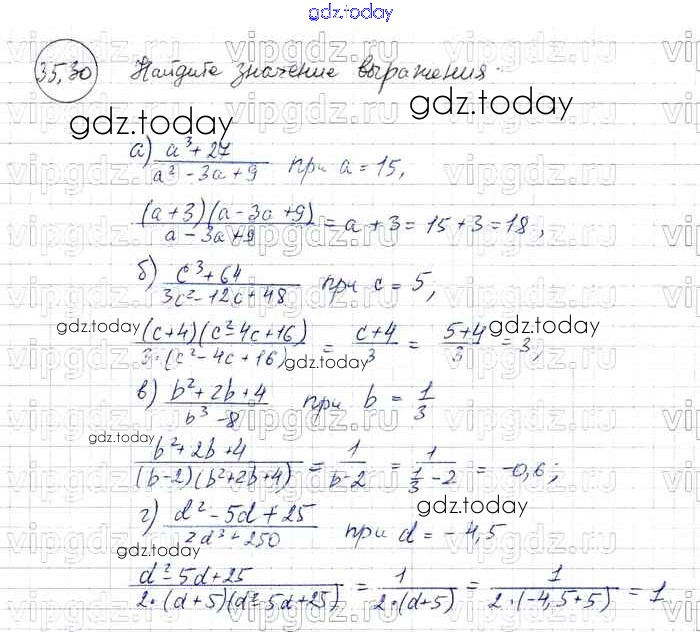 gdz.today
35.30 Найдите значение выражения.
gdz.today gdz.today
а) a³+27 / a² - 3a + 9 при a = 15,
(a+3)(a - 3a + 9) / a - 3a + 9 = a + 3 = 15 + 3 = 18,
б) c³ + 64 / 3c² - 12c + 48 при c = 5,
gdz.today gdz.today
(c+4)(c² - 4c + 16) / 3·(c² - 4c + 16) = c+4 / 3 = 5+4 / 3 = 3,
в) b² + 2b + 4 / b³ - 8 при b = 1/3
gdz.today
b² + 2b + 4 / (b-2)(b² + 2b + 4) = 1 / b-2 = 1 / 1/3 - 2 = -0,6;
gdz.today
г) d² - 5d + 25 / 2d³ + 250 при d = -4,5
gdz.today
d² - 5d + 25 / 2·(d+5)(d² - 5d + 25) = 1 / 2·(d+5) = 1 / 2·(-4,5+5) = 1